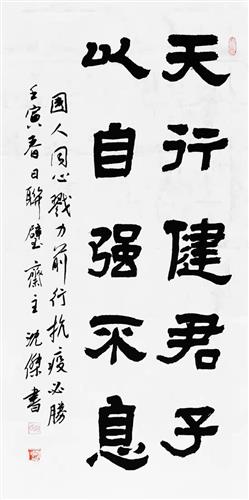 天行健君子
以自强不息
國人同心戮力前行抗疫必勝
壬寅春日聯璧齋主沈傑書